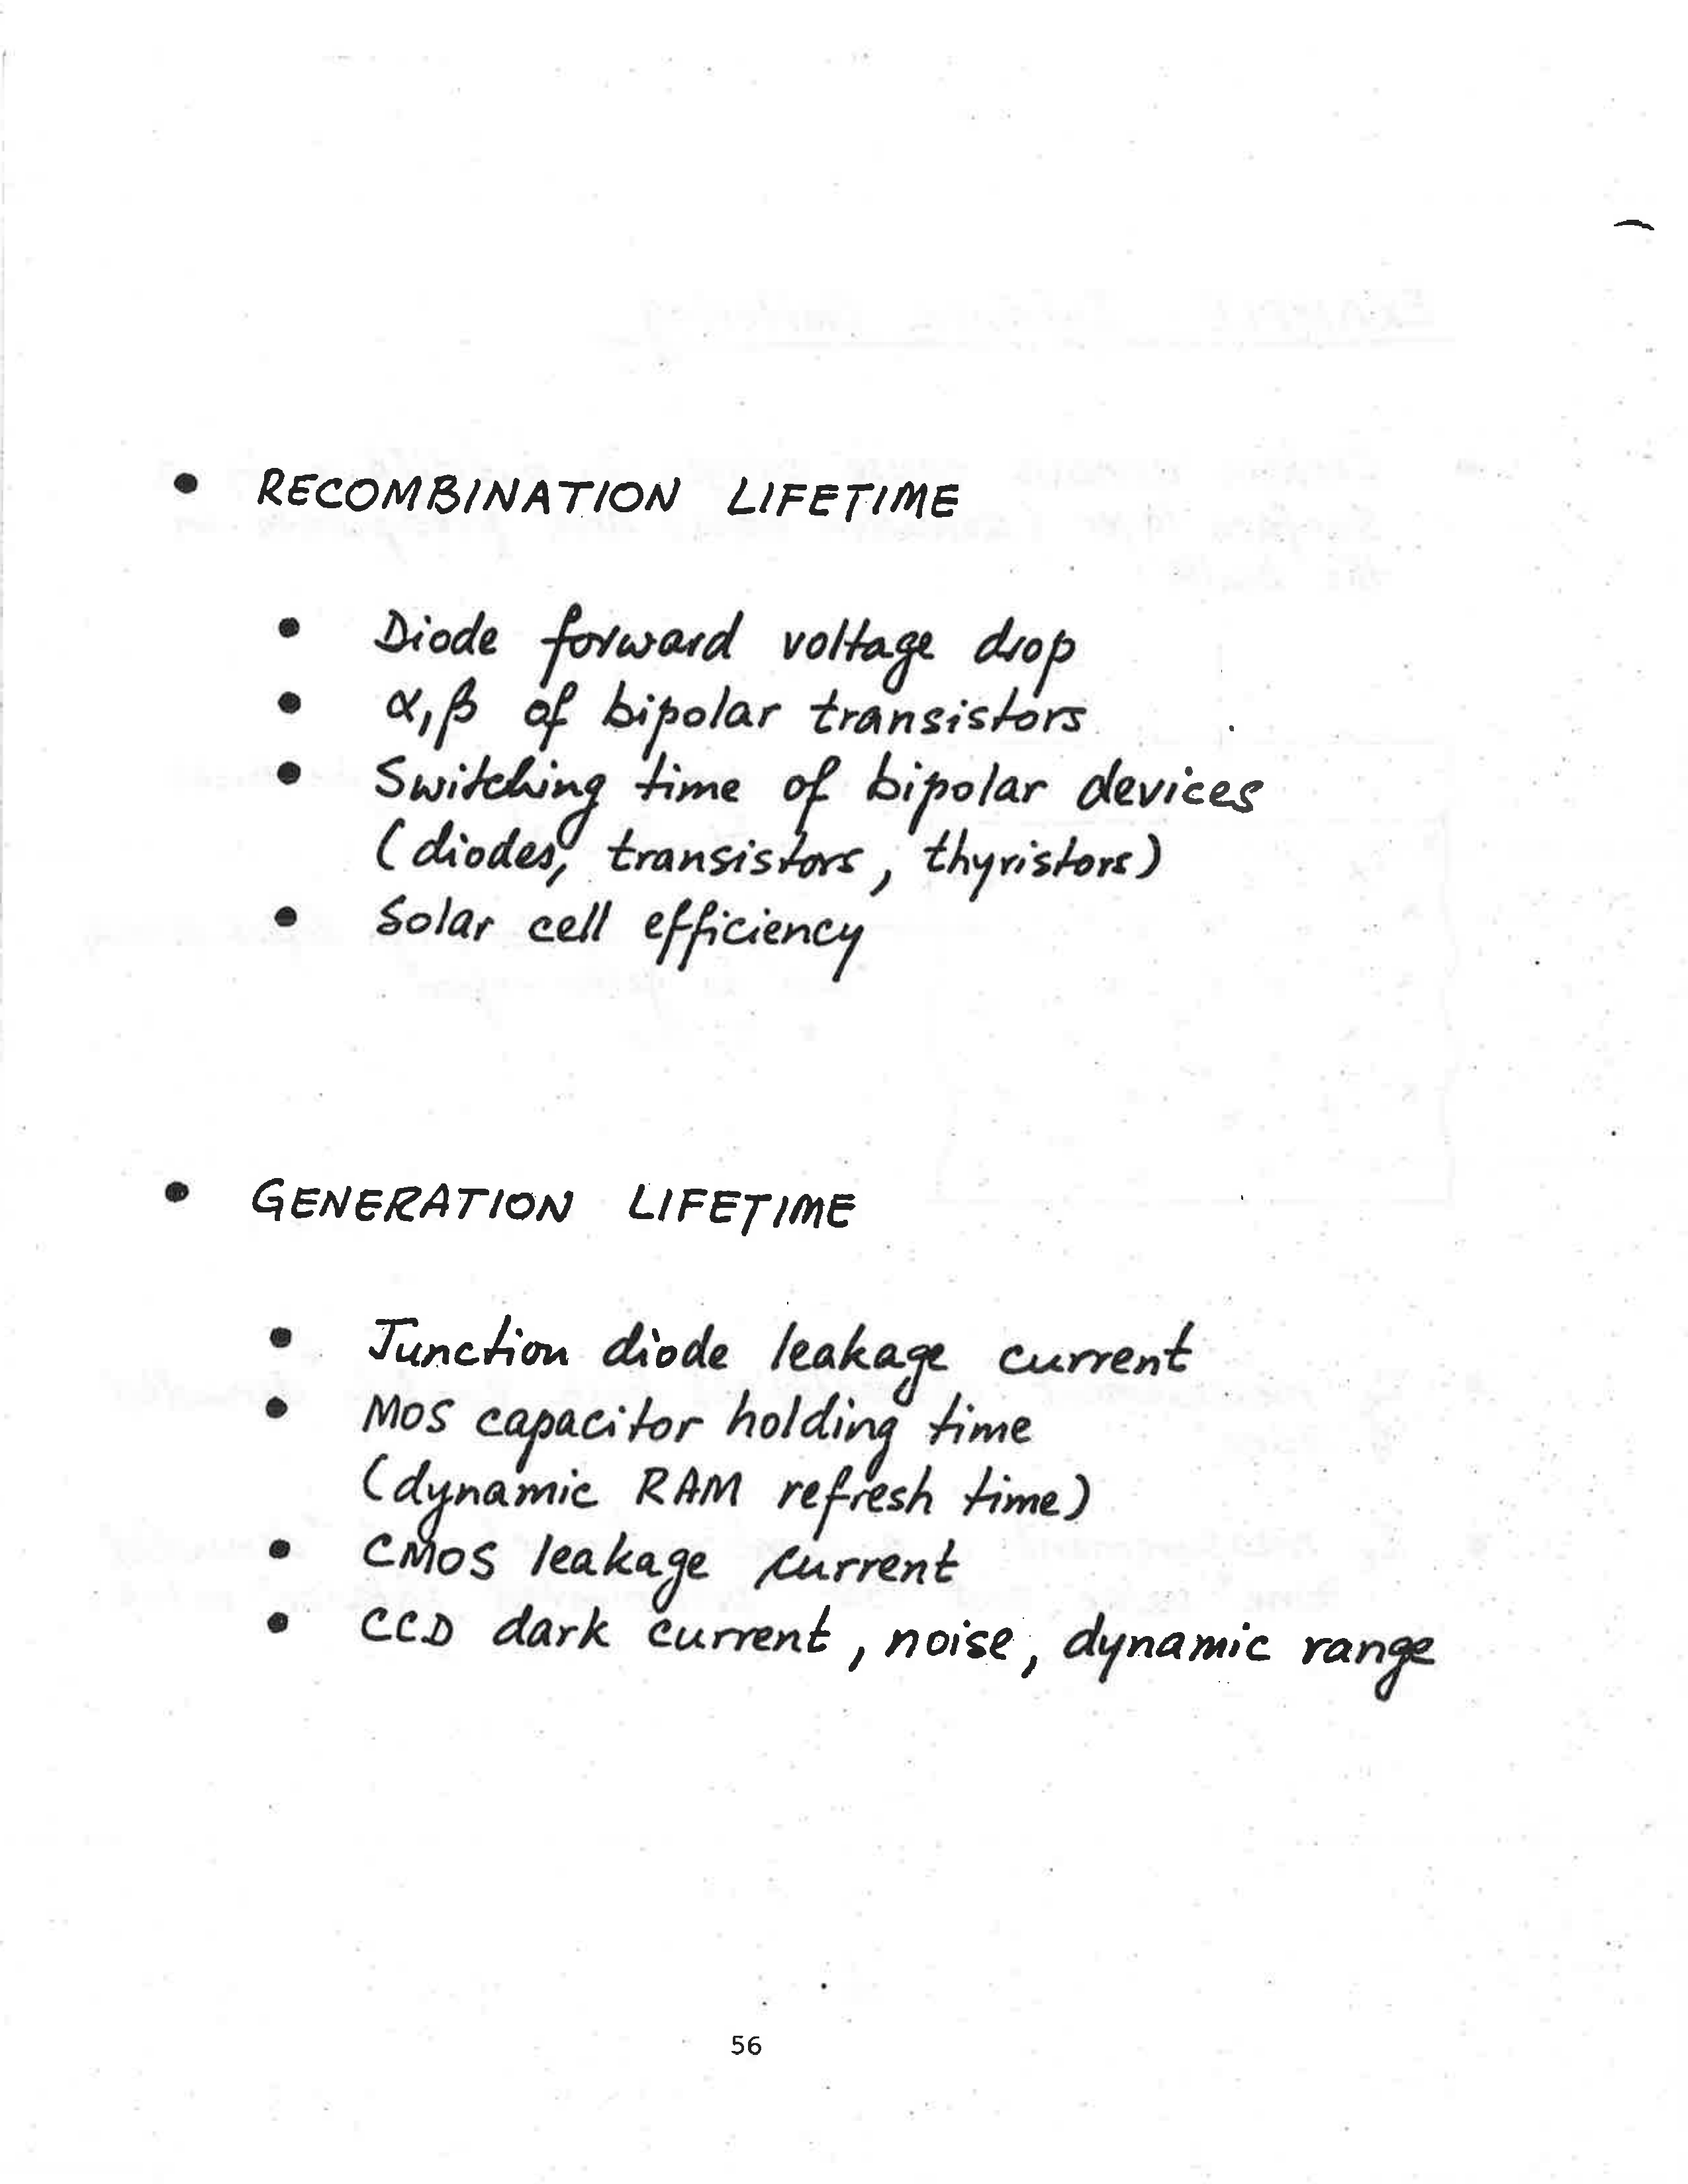 • RECOMBINATION LIFETIME
• Diode forward voltage drop
• α, β of bipolar transistors
• Switching time of bipolar devices
(diodes, transistors, thyristors)
• Solar cell efficiency
• GENERATION LIFETIME
• Junction diode leakage current
• MOS capacitor holding time
(dynamic RAM refresh time)
• CMOS leakage current
• CCD dark current, noise, dynamic range
56